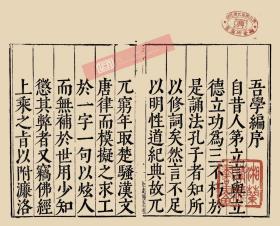 吾學編序
自昔人第立言與立
德立功為三不朽於
是誦法孔子者知所
以修詞矣然言不足
以明性道紀典故元
元窮年取楚騷漢文
唐律而模擬之求工
於一字一句以炫人
而無補於世用少知
懲其弊者又竊佛經
上乘之旨以附濂洛